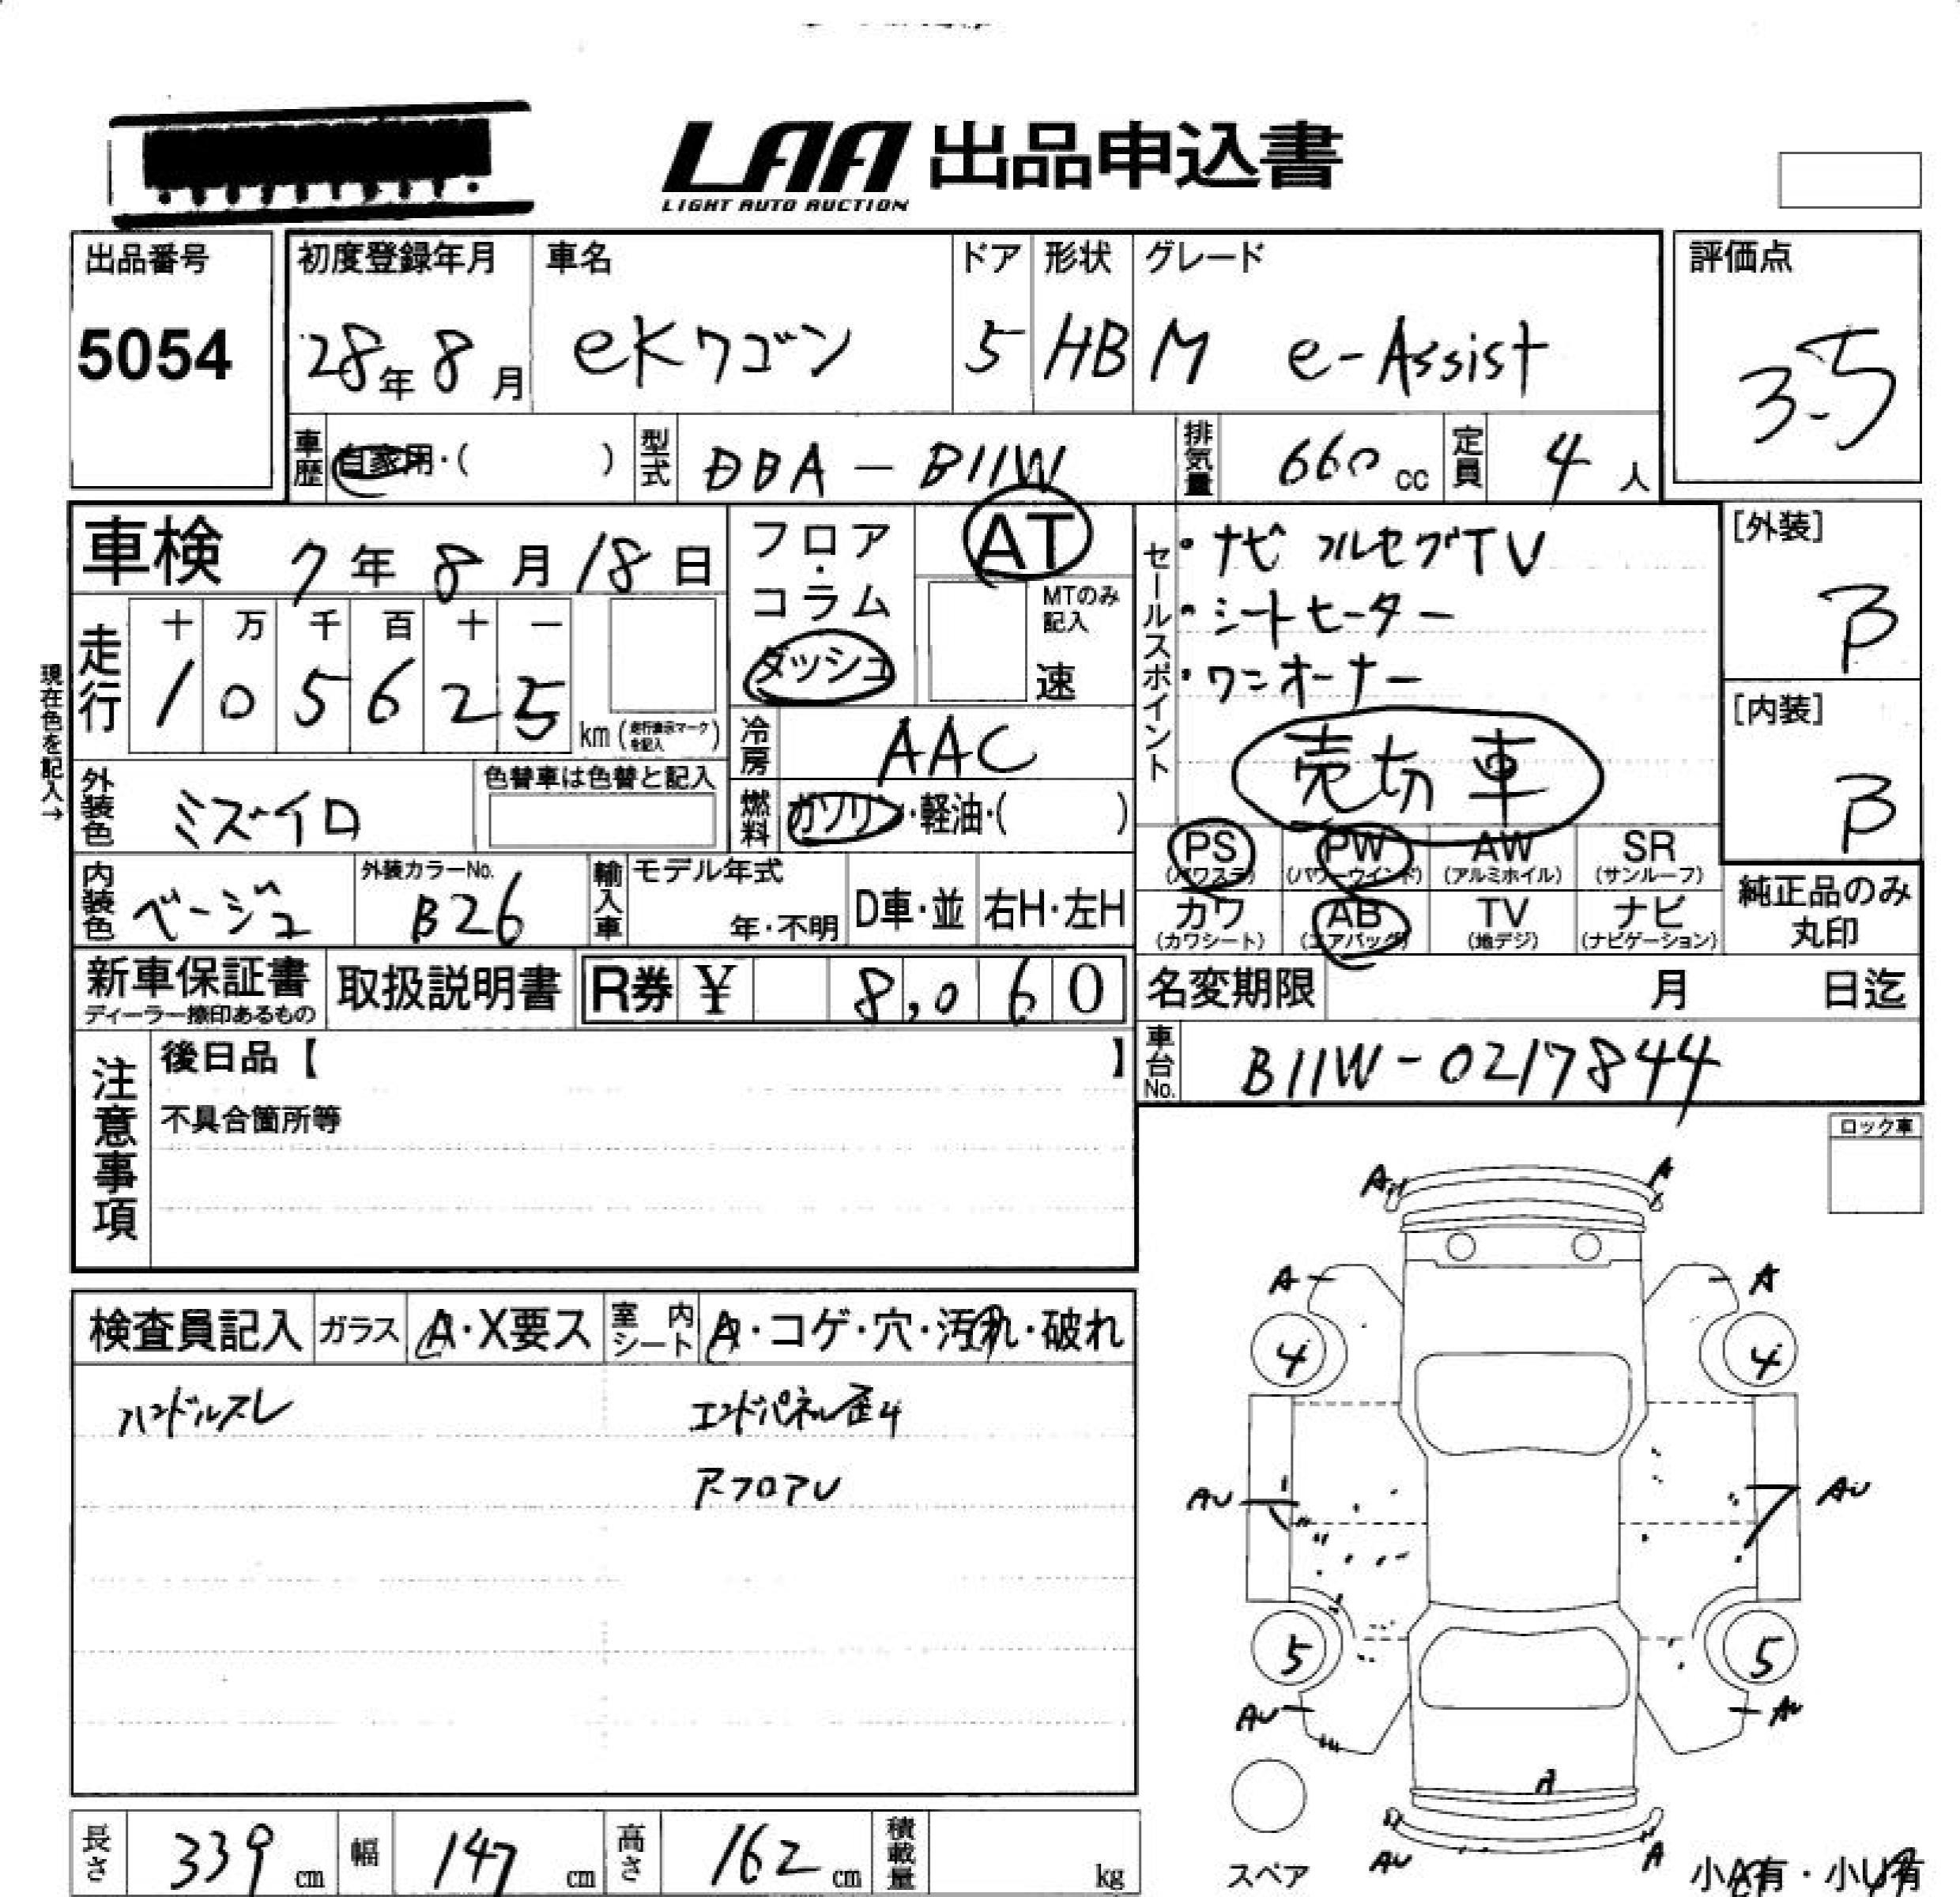 LAA 出品申込書
LIGHT AUTO AUCTION
出品番号
5054
初度登録年月
28年 8月
車名
eKワゴン
ドア
5
形状
HB
グレード
M e-Assist
評価点
3.5
車歴 自家用・( )
型式 DBA-B11W
排気量 660 cc
定員 4 人
車検 7年 8月 18日
フロア・コラム
ダッシュ
AT
MTのみ記入
速
セールスポイント
・ナビ フルセグTV
・シートヒーター
・ワンオーナー
売切車
[外装]
B
[内装]
B
現在色を記入→
走行
十 万 千 百 十 一
1 0 5 6 2 5
km (走行表示マークを記入)
冷房 AAC
外装色 ミズイロ
色替車は色替と記入
燃料 ガソリン・軽油・( )
PS (パワステ)
PW (パワーウインド)
AW (アルミホイル)
SR (サンルーフ)
内装色 ベージュ
外装カラーNo.
B26
輸入車
モデル年式
年・不明
D車・並
右H・左H
カワ (カワシート)
AB (エアバッグ)
TV (地デジ)
ナビ (ナビゲーション)
純正品のみ丸印
新車保証書
ディーラー捺印あるもの
取扱説明書
R券 ¥ 8,060
名変期限 月 日迄
注意事項
後日品【 】
不具合箇所等
車台No. B11W-0217844
ロック車
検査員記入
ガラス A・X要ス
室内シート A・コゲ・穴・汚れ・破れ
ハンドルスレ
エンドパネル歪4
RフロアU
A
A
A
A
4
4
AU
AU
5
5
AU
AU
A
AU
A
スペア
小A有・小U有
長さ 339 cm
幅 147 cm
高さ 162 cm
積載量 kg